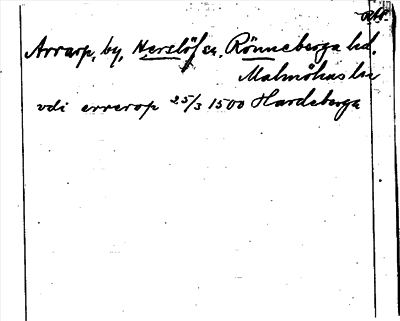 Avs.
Arrarp, by, Herslöfs sn. Rönnebergs hd.
Malmöhus län
vdi errerop 25/3 1500 Hardeberga